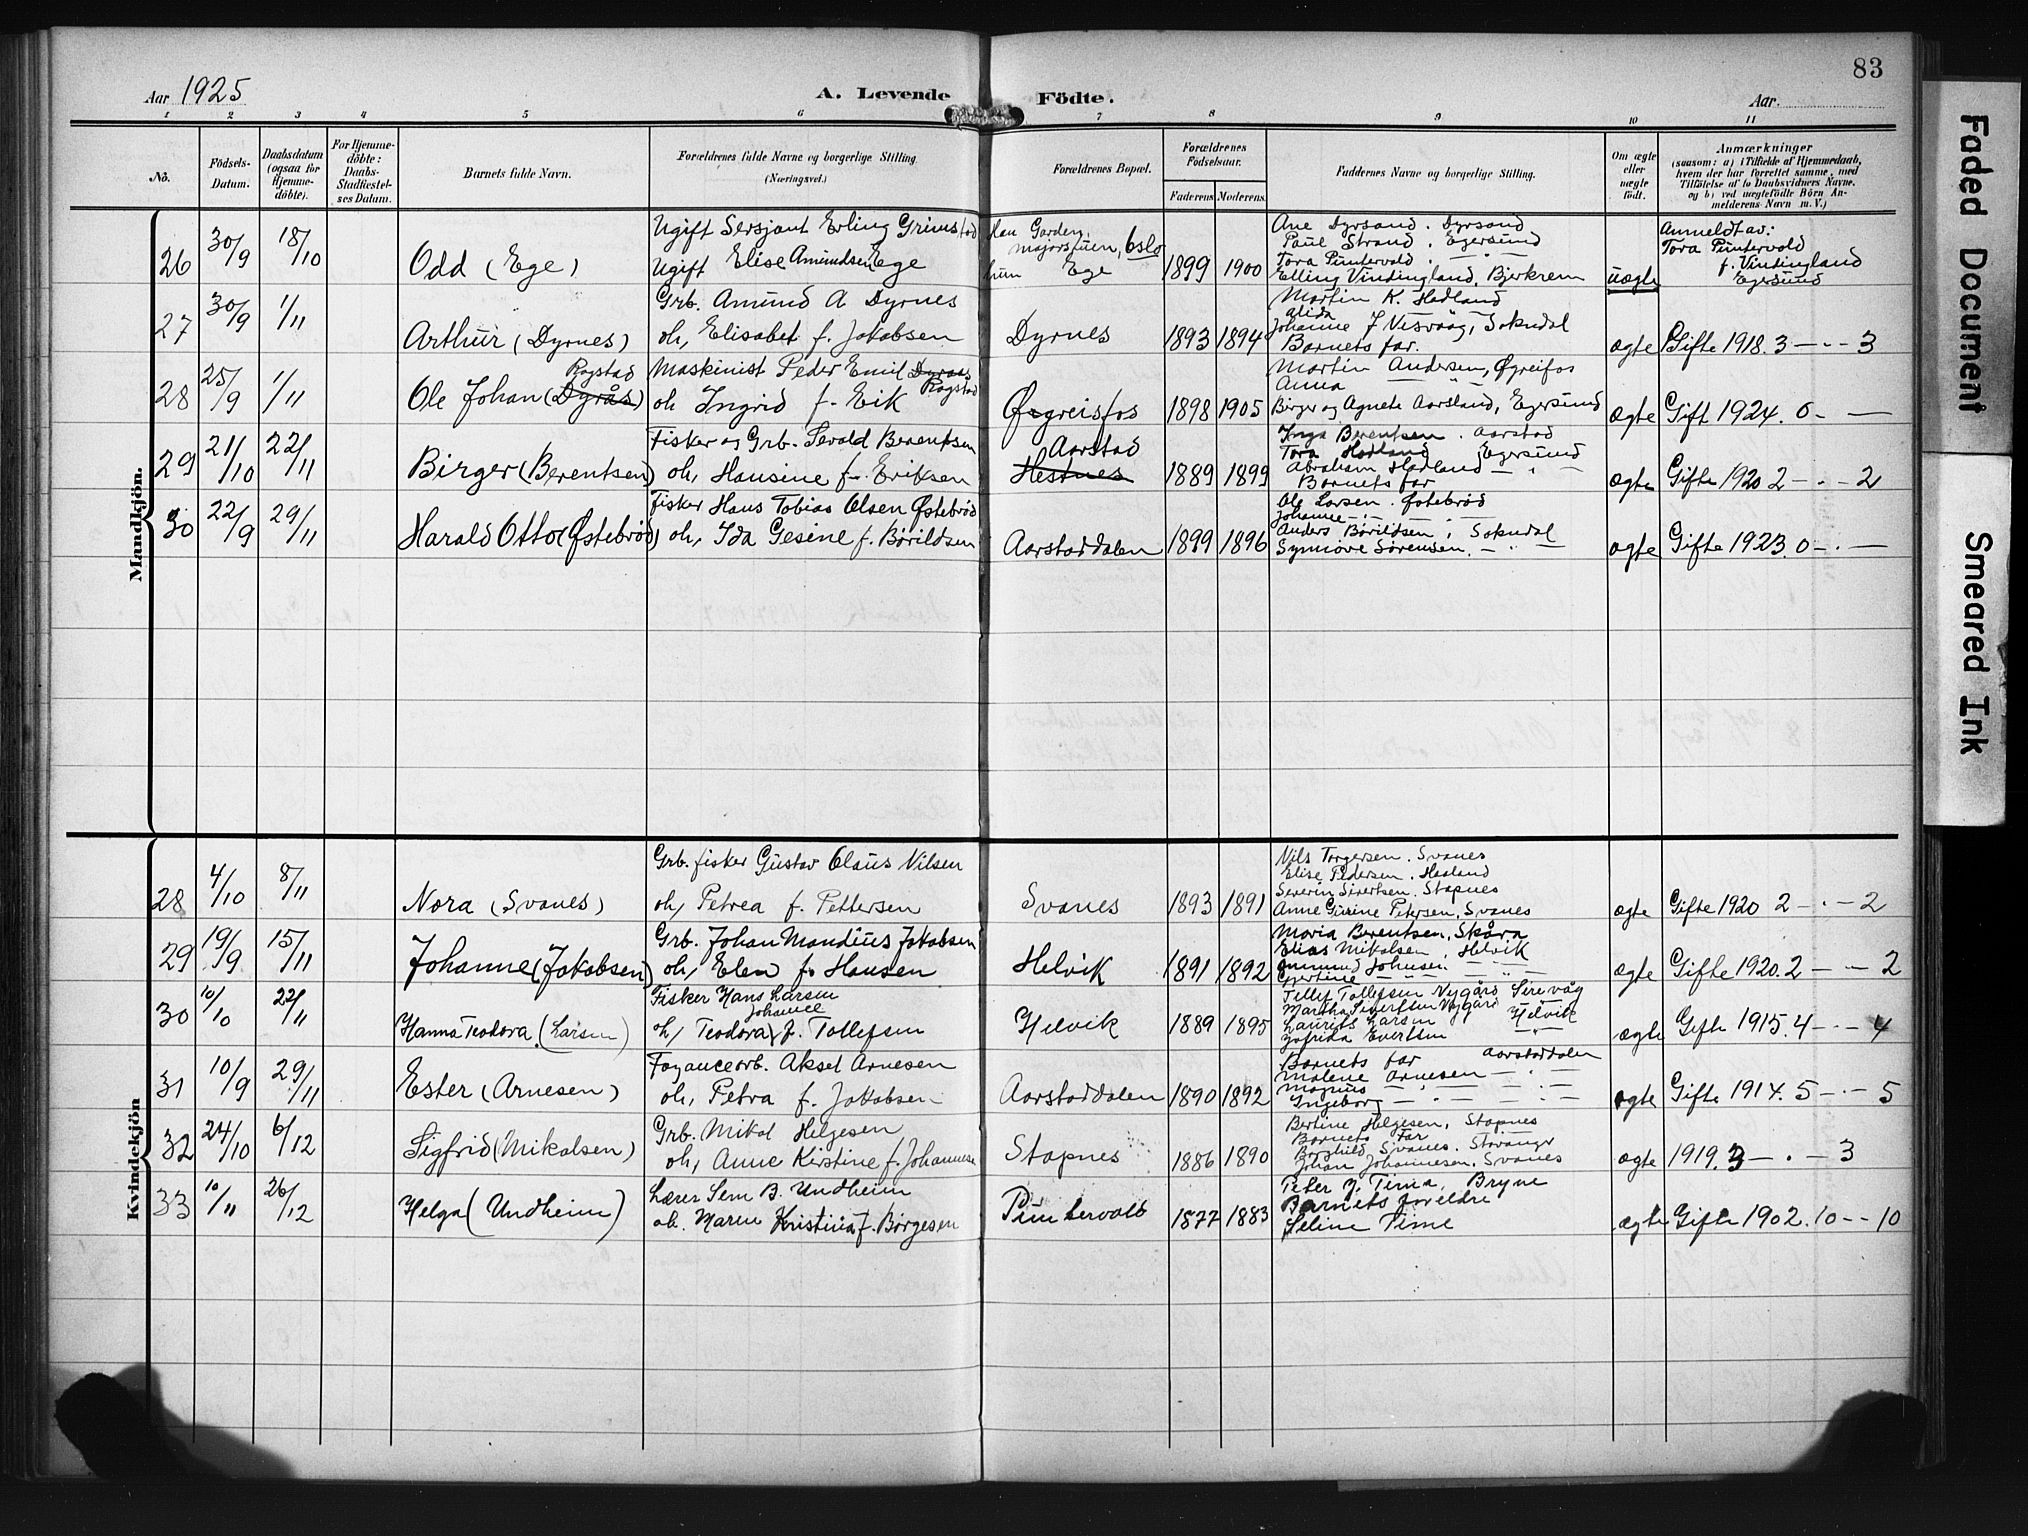 83
Aar 1925
A. Levende
Födte.
Aar.
1 2 3 4 5 6 7 8 9 10 11
No.
Födsels-Datum.
Daabsdatum (ogsaa for Hjemme-döbte).
For Hjemme-döbte: Daabs-Stadfæstel-ses Datum.
Barnets fulde Navn.
Forældrenes fulde Navne og borgerlige Stilling.
(Næringsvei.)
Forældrenes Bopæl.
Forældrenes Födselsaar.
Faderens Moderens
Faddernes Navne og borgerlige Stilling.
Om ægte eller uægte födt.
Anmærkninger
(saasom: a) i Tilfælde af Hjemmedaab,
hvem der har forrettet samme, med
Tilföielse af to Daabsvidners Navne,
og b) ved uægtefödte Börn An-
melderens Navn m. V.)
Mandkjön.
26 30/9 18/10 Odd (Ege)
Ugift Sersjant Erling Grimstad
Ugift Elise Amundsen Ege
Han Garden, majorstuen, Oslo
hun Ege
1899 1900
Ane Dyrsand. Dyrsand
Paul Strand. Egersund
Tora Puntervold. — " —
Elling Vindingland, Bjerkrem
uægte
Anmeldt av:
Tora Puntervold
f. Vindingland
Egersund
27 30/9 1/11 Arthur (Dyrnes)
Grb. Amund A Dyrnes
oh, Elisabet f. Jakobsen
Dyrnes
1893 1894
Martin K. Hadland
Alida
Johanne J Nesvåg, Sokndal
Barnets far.
ægte Gifte 1918. 3 — - — 3
28 25/9 1/11
Rogstad
Ole Johan (Dyrås)
Maskinist Peder Emil Dyraas
Rogstad
oh Ingrid f. Eik
Øgreisfos
1898 1905
Martin Andersen, Øgreifos
Anna "
Birger og Agnete Aarsland, Egersund
ægte Gift 1924. 0 - —
29 21/10 22/11 Birger (Berentsen)
Fisker og Grb. Sevald Berentsen
oh, Hansine f. Eriksen
Aarstad
Hestnes
1889 1899
Inga Berentsen. Aarstad
Tora Hadland Egersund
Abraham Hadland — " —
Barnets far
ægte Gifte 1920 2 — - — 2
30 22/9 29/11 Harald Otto (Østebrød)
Fisker Hans Tobias Olsen Østebrød
oh, Ida Gesine f. Børildsen
Aarstaddalen
1899 1896
Ole Larsen. Østebrød
Johanne — " —
Anders Børildsen, Sokndal
Synnøve Sørensen. — " —
ægte Gifte 1923. 0 - . —
Kvindekjön
28 4/10 8/11 Nora (Svanes)
Grb. fisker Gustav Olaus Nilsen
oh, Petrea f. Pettersen
Svanes
1893 1891
Nils Torgersen. Svanes
Elise Pedersen. Hadland
Severin Sivertsen. Stapnes
Anne Gurine Petersen, Svanes
ægte Gifte 1920 2 — - — 2
29 19/9 15/11 Johanne (Jakobsen)
Grb. Johan Mandius Jakobsen
oh, Elen f. Hansen
Helvik
1891 1892
Maria Berentsen, Skåra
Elias Mikalsen, Helvik
Johnsen — " —
Gjertine — " —
ægte Gifte 1920. 2 — - — 2
30 10/10 22/11 Hanna Teodora (Larsen)
Fisker Hans Larsen
Johanne
oh, Teodora f. Tollefsen
Helvik
1889 1895
Tellef Tollefsen Nygård Sirevåg
Martha Sivertsen Nygård
Laurits Larsen Helvik
Evertsen — " —
ægte Gifte 1915. 4 — - — 4
31 10/9 29/11 Ester (Arnesen)
Fayancearb. Aksel Arnesen
oh, Petra f. Jakobsen
Aarstaddalen
1890 1892
Barnets far Aarstaddalen
Malene Arnesen — " —
Magnus — " — — " —
Ingeborg — " — — " —
ægte Gifte 1914. 5 — - — 5
32 24/10 6/12 Sigfrid (Mikalsen)
Grb. Mikal Helgesen
oh, Anne Kirstine f. Johannesen
Stapnes
1886 1890
Bertine Helgesen, Stapnes
Barnets Far
Borghild Svanes. Stavanger
Johan Johannesen, Svanes
ægte 1919. 3 — . — 3
33 10/11 26/12 Helga (Undheim)
Lærer Sem B. Undheim
oh. Maren Kristina f. Børgesen
Puntervold
1877 1883
Peter J. Time, Bryne
Barnets foreldre
Seline Time
ægte Gifte 1902. 10 - - 10
Faded Document
Smeared Ink